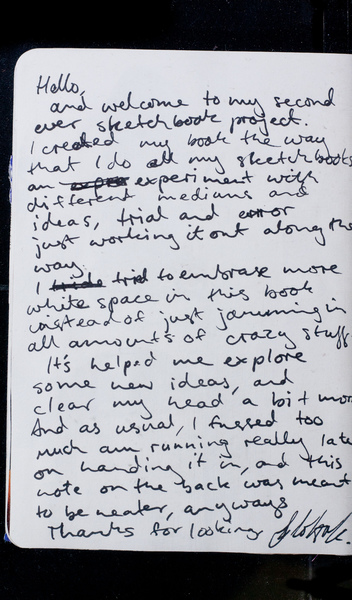 Hello,
and welcome to my second
ever sketchbook project.
I created my book the way
that I do all my sketchbooks
an experiment with
different mediums and
ideas, trial and error
just working it out along the
way.
I tried to embrase more
white space in this book
instead of just jamming in
all amounts of crazy stuff.
It's helped me explore
some new ideas, and
clear my head a bit more
And as usual, I fussed too
much am running really late
on handing it in, and this
note on the back was meant
to be neater, anyways
Thanks for looking